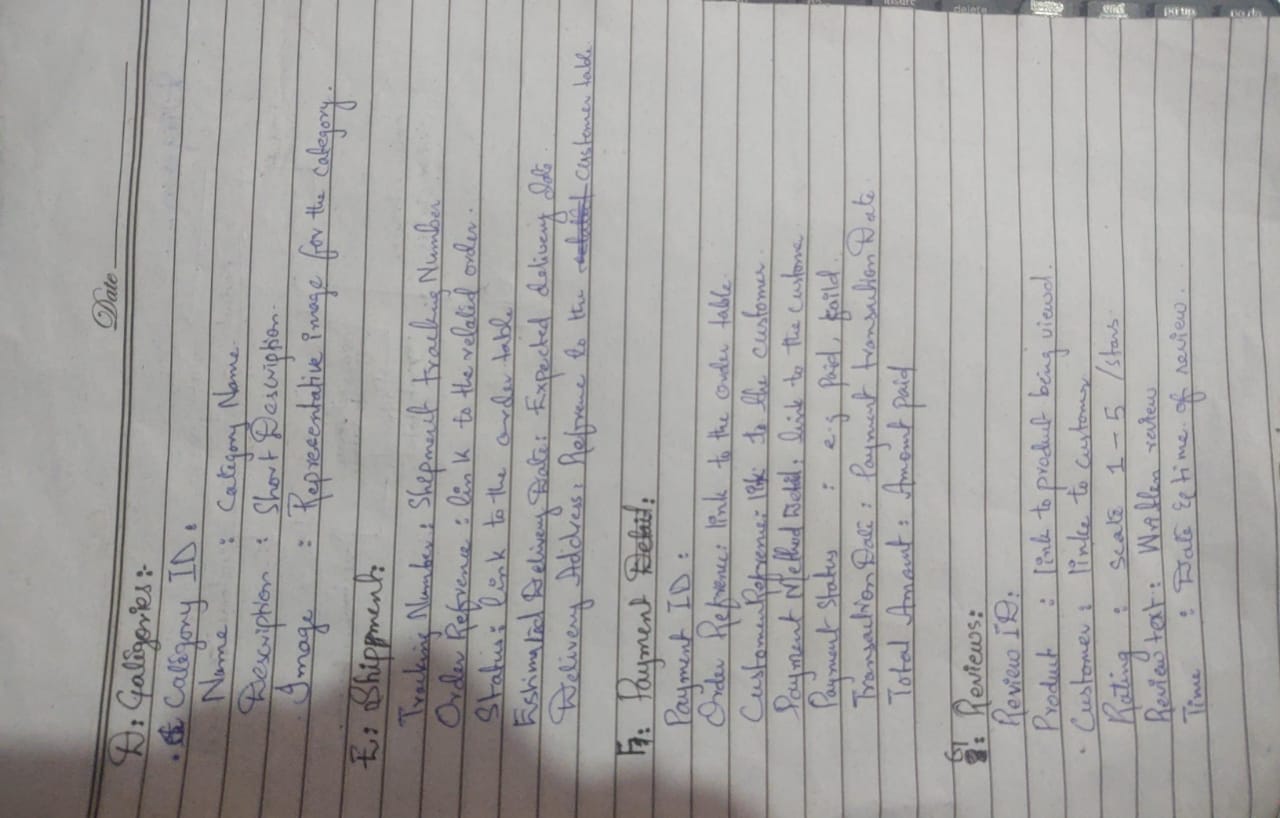 Date
D: Categories:-
Category ID:
Name : Category Name
Description : Short Description.
Image : Representative image for the category.
E: Shippment:
Tracking Number: Shepment tracking Number
Order Refrence: link to the related order.
Status: link to the order table
Estimated Delivery Date: Expected delivery date
Delivery Address: Refrence to the customer table
F: Payment Detail:
Payment ID:
Order Refrence: link to the order table
Customer Refrence: link to the customer.
Payment Method Detail: link to the custome
Payment Status : e.g paid, faild
Transaction Date: Payment transaction Date
Total Amount: Amount paid
G: Reviews:
Review ID:
Product : link to product being viewd.
Customer: linke to customer
Rating : Scale 1-5 /stars
Review text: Written review
Time : Date & time of review.
delete
end
pg up
pg dn